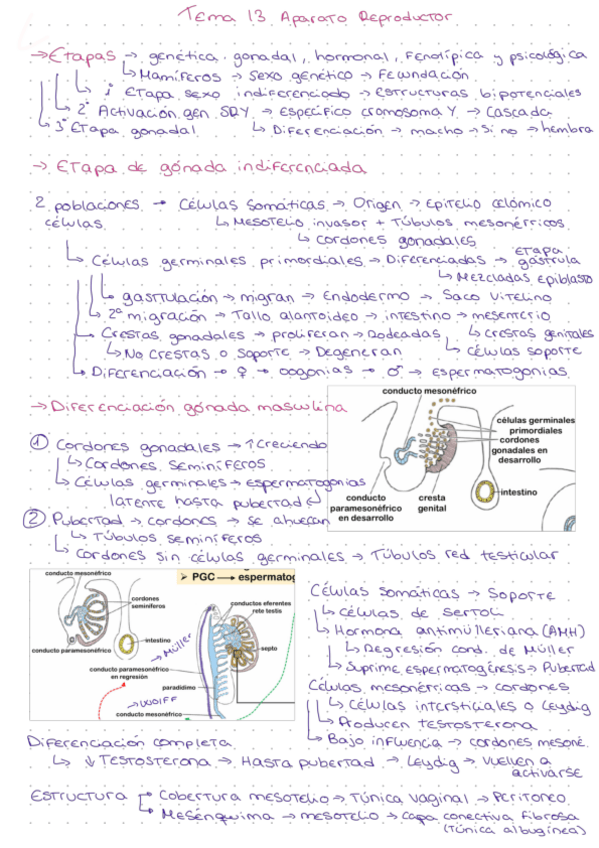 Tema 13 Aparato Reproductor
→ Etapas → genética, gonadal, hormonal, Fenotípica y psicológica
↳ Mamíferos → Sexo genético → Fecundación
↳ 1ª Etapa sexo indiferenciado → estructuras bipotenciales
↳ 2ª Activación gen SRY → Específico cromosoma Y → Cascada
↳ 3ª Etapa gonadal ↳ Diferenciación → macho → Si no → hembra
→ Etapa de gónada indiferenciada
2 poblaciones → Células somáticas → Origen → Epitelio celómico
células ↳ Mesotelio invasor + Túbulos mesonéfricos
↳ cordones gonadales
↳ Células germinales primordiales → Diferenciadas → etapa gástrula
↳ Mezcladas epiblasto
↳ gastrulación → migran → Endodermo → Saco vitelino
↳ 2ª migración → Tallo alantoideo → intestino → mesenterio
↳ Crestas gonadales → proliferan → Rodeadas ↳ crestas genitales
↳ No crestas o soporte → Degeneran ↳ células soporte
↳ Diferenciación → ♀ → oogonias → ♂ → espermatogonias
→ Diferenciación gónada masculina
① Cordones gonadales → ↑ Creciendo
↳ Cordones seminíferos
↳ Células germinales → espermatogonias
latente hasta pubertad ↲
② Pubertad → cordones → se ahuecan
↳ Túbulos seminíferos
↳ Cordones sin células germinales → Túbulos red testicular
conducto mesonéfrico
células germinales primordiales
cordones gonadales en desarrollo
intestino
conducto paramesonéfrico en desarrollo
cresta genital
conducto mesonéfrico
cordones seminíferos
intestino
conducto paramesonéfrico
➤ PGC → espermatog
conductos eferentes
rete testis
septo
→ Müller
conducto paramesonéfrico en regresión
paradídimo
→ Wolff
conducto mesonéfrico
Células somáticas → Soporte
↳ Células de Sertoli
↳ Hormona antimülleriana (AMH)
↳ Regresión cond. de Müller
↳ Suprime espermatogénesis → Pubertad
Células mesonéfricas → cordones
↳ Células intersticiales o Leydig
↳ Producen testosterona
↳ Bajo influencia → cordones mesoné.
Diferenciación completa
↳ ↓ Testosterona → Hasta pubertad → Leydig → vuelven a activarse
Estructura → Cobertura mesotelio → Túnica vaginal → Peritoneo
↳ Mesénquima → mesotelio → capa conectiva fibrosa
(Túnica albugínea)